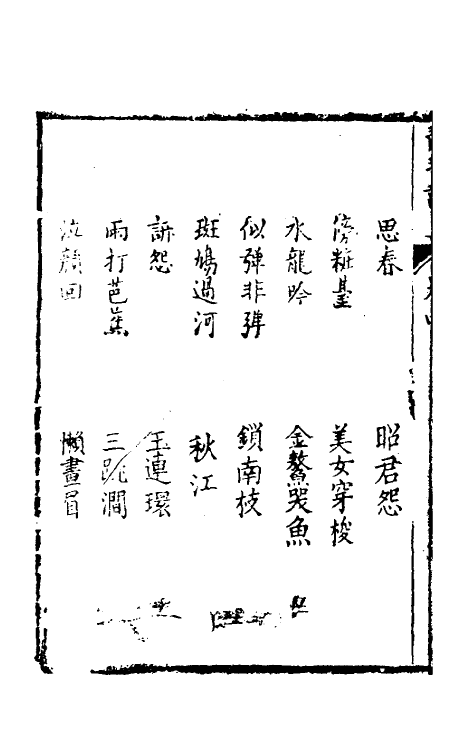 思春
昭君怨
傍粧臺
美女穿梭
水龍吟
金鰲哭魚
似弹非弹
鎖南枝
斑鳩過河
秋江
訴怨
玉連環
雨打芭蕉
三跳澗
泣顏回
懶畫眉